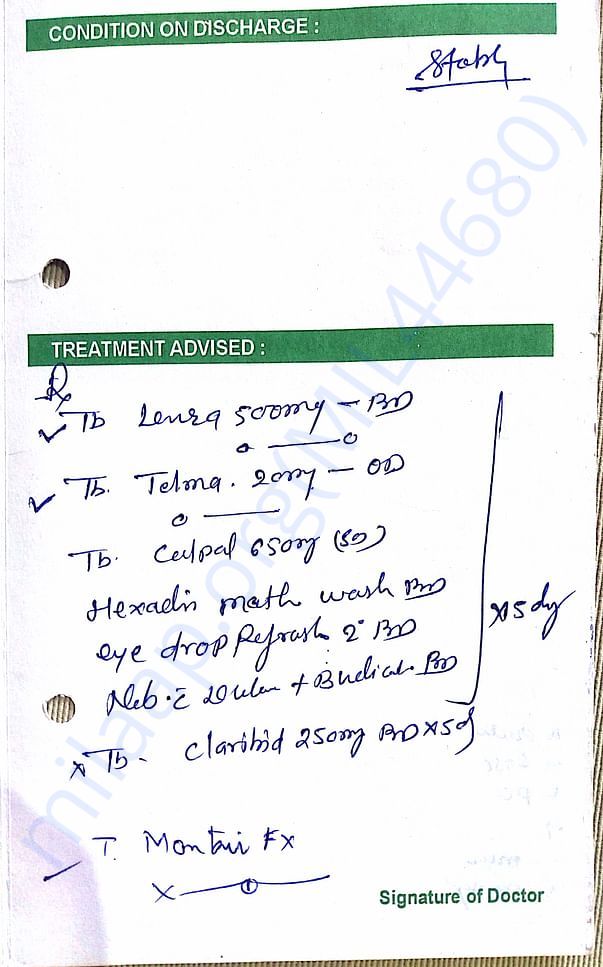 CONDITION ON DISCHARGE :
Stable
TREATMENT ADVISED :
Rx
Tb 500mg - BD
o — o
Tb. Telma. 20mg - OD
o —
Tb. Calpal 650mg (SO)
Hexadin math wash BD
eye drop Refrash 2° BD
Neb. c + BD
x 5 dy
x Tb. Claribid 250mg BD x 5 d
T. Montair FX
x — 1
Signature of Doctor
milaap.org(MIL44680)